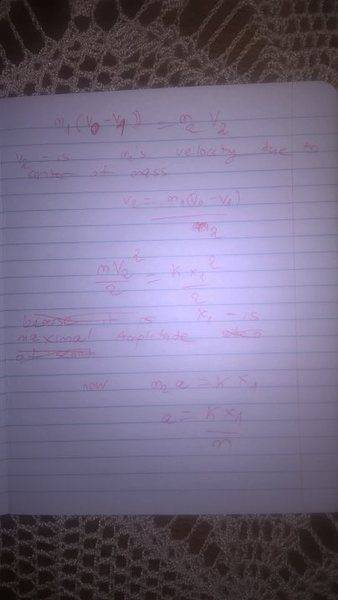 m₁(v₀ - v₁) = m₂ v₂
v₂ - is m₂'s velocity due to
center of mass
v₂ = m₁(v₀ - v₁) / m₂
mv₂² / 2 = K x₁² / 2
x₁ - is
maximal amplitude
now m₂ a = K x₁
a = K x₁ / m